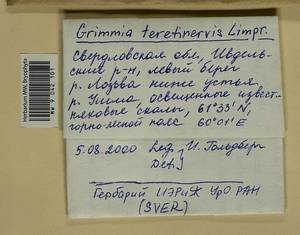 Grimmia teretinervis Limpr.
Свердловская обл, Ивдель-
ский р-н, левый берег
р. Лозьва ниже устья
р. Ушма, освещенные извест-
няковые скалы, 61°33'N,
горно-лесной пояс 60°01'E
5.08.2000 Leg. И. Гольдберг
Det.
Гербарий ИЭРиЖ УрО РАН
(SVER)
Herbarium MW, Bryophyta